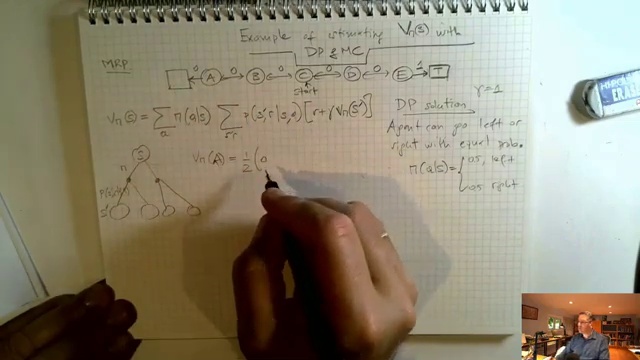 Example of estimating Vπ(s) with
DP & MC
MRP
0 A 0 B 0 C 0 D 0 E 1 T
start
γ=1
Vπ(s) = ∑a π(a|s) ∑s',r p(s',r|s,a) [r+γVπ(s')]
DP solution
Agent can go left or
right with equal prob.
S
π
Vπ(A) = 1/2 (0
π(a|s) = { 0.5, left
0.5 right
s'
ERAS